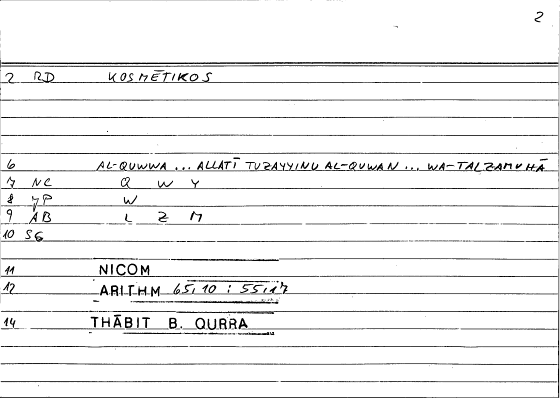 2
2 RD KOSMĒTIKOS
6 AL-QUWWA ... ALLATĪ TUZAYYINU AL-QUWAN ... WA-TALZAMUHĀ
7 NC Q W Y
8 YP W
9 AB L Z M
10 SG
11 NICOM
12 ARITHM 65,10 : 55,17
14 THĀBIT B. QURRA